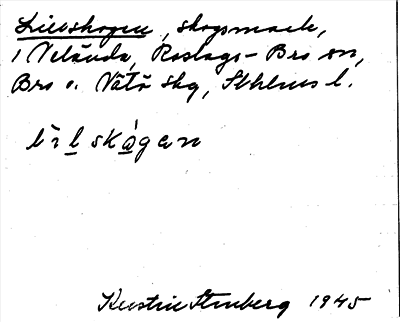 Lillskogen, skogsmark,
i Velända, Roslags-Bro sn,
Bro o. Vätö skg, Sthlms l.
lìlskógen
Kerstin Stenberg 1945